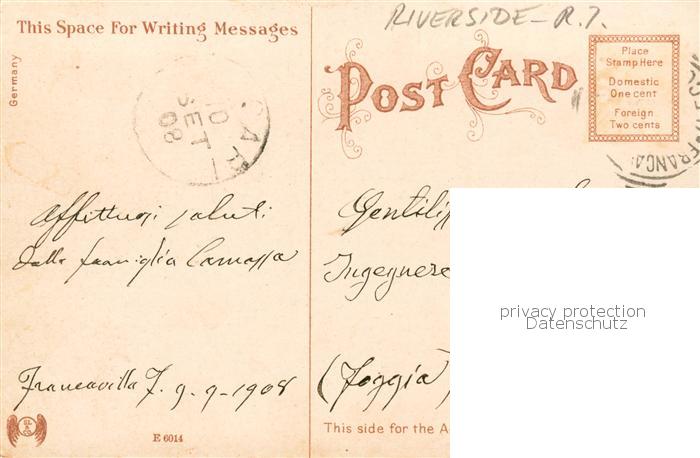 RIVERSIDE - R.I.
This Space For Writing Messages
Germany
POST CARD
Place
Stamp Here
Domestic
One cent
Foreign
Two cents
10
SET
08
Affettuosi saluti
dalla famiglia Camassa
Francavilla F. 9-9-1908
Ingegnere
(Foggia)
privacy protection
Datenschutz
E 6014
This side for the A